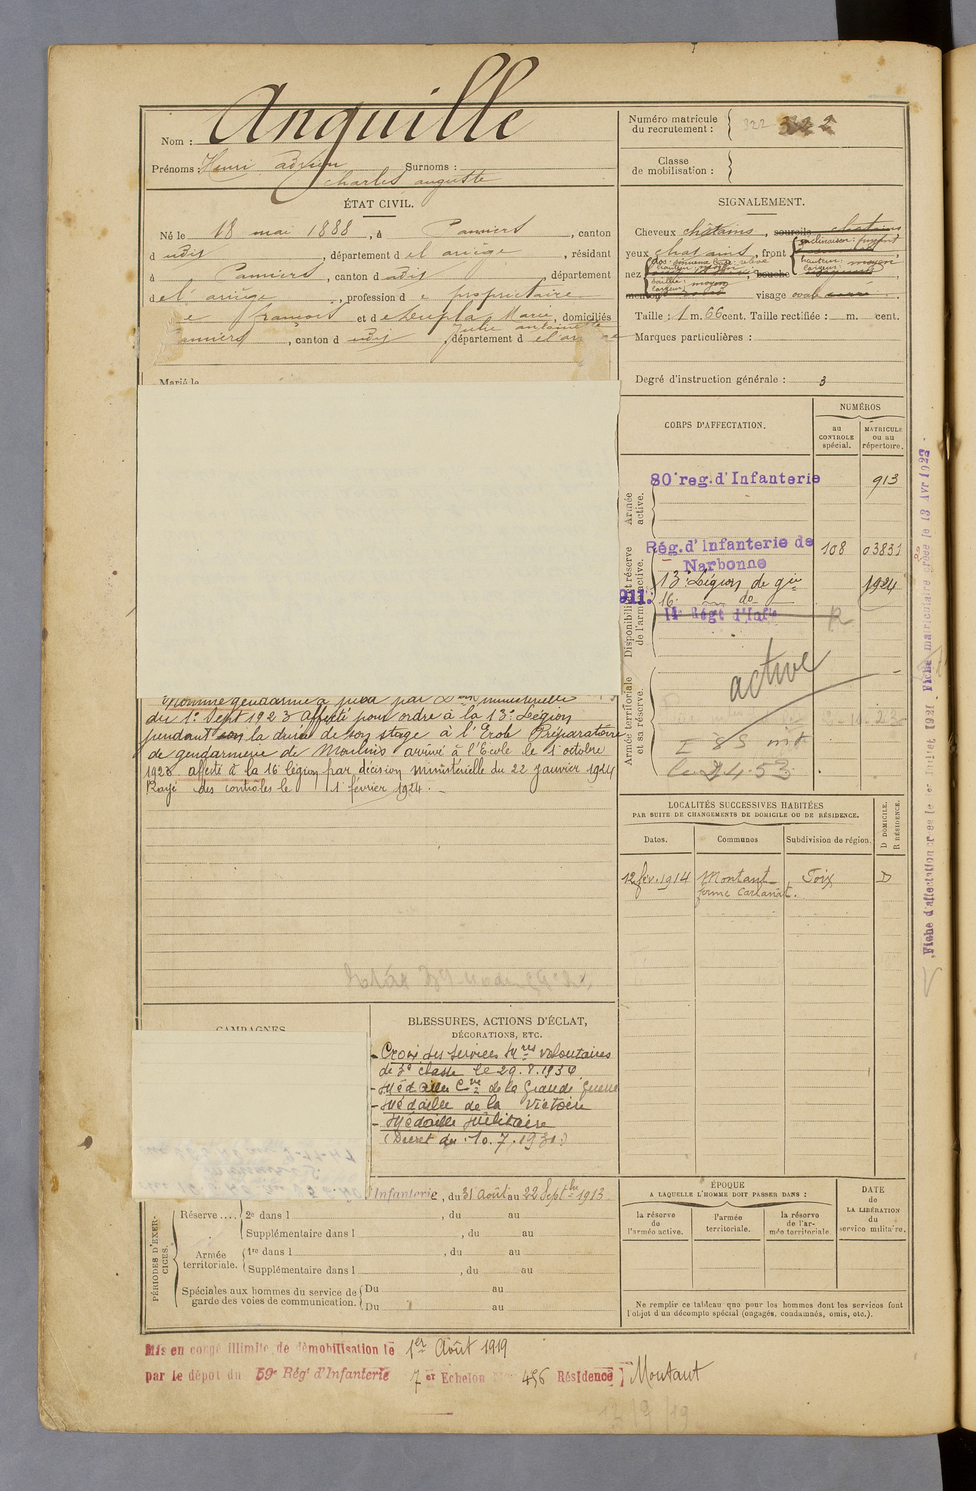 Nom : Anguille
Prénoms : Henri adrien Surnoms :
charles auguste
ÉTAT CIVIL.
Né le 18 mai 1888, à Pamiers, canton
d udit, département d el ariège, résidant
à Pamiers, canton d udit, département
d el ariège, profession d e propriétaire
e françois et d e Dupla Marie, domiciliés
Julie antoinette
amiers, canton d udit, département d el ar
Marié le
Nommé gendarme à pied par Don ministerielle
du 1er Sept 1923 affecté pour ordre à la 13e Légion
pendant la durée de son stage à l'Ecole Préparatoire
de gendarmerie de Moulins arrivé à l'Ecole le 1 octobre
1923. affecté à la 16 légion par décision ministérielle du 22 janvier 1924
Rayé des contrôles le 1er février 1924.
CAMPAGNES
BLESSURES, ACTIONS D'ÉCLAT,
DÉCORATIONS, ETC.
- Croix des services Mres volontaires
de 3e classe le 29.8.1934
- Médaille Cve de la Grande guerre
- Médaille de la Victoire
- Médaille Militaire
(Décret du 10.7.1930)
Infanterie, du 31 Août au 22 Septbre 1913.
PÉRIODES D'EXERCICES.
Réserve .... 2e dans l , du au
Supplémentaire dans l , du au
Armée territoriale. 1re dans l , du au
Supplémentaire dans l , du au
Spéciales aux hommes du service de garde des voies de communication. Du au
Du au
Numéro matricule
du recrutement : 322 322
Classe
de mobilisation :
SIGNALEMENT.
Cheveux châtains, sourcils châtains
yeux chatains, front inclinaison: fuyant
hauteur: moyen
largeur: moyen
nez dos: sinueux base: relevé
hauteur: moyen
saillie: moyen
largeur: moyen
bouche
menton visage ovale
Taille : 1 m. 66 cent. Taille rectifiée : m. cent.
Marques particulières :
Degré d'instruction générale : 3
CORPS D'AFFECTATION.
NUMÉROS
au CONTROLE spécial.
MATRICULE ou au répertoire.
Armée active.
80e reg. d'Infanterie 913
Disponibilité et réserve de l'armée active.
Rég. d'Infanterie de 108 03831
Narbonne
13e Légion de gie 1924
911. 16 do
11e Régt d'Infie R
Armée territoriale et sa réserve.
active
LOCALITÉS SUCCESSIVES HABITÉES
PAR SUITE DE CHANGEMENTS DE DOMICILE OU DE RÉSIDENCE.
Dates. Communes Subdivision de région.
D DOMICILE.
R RÉSIDENCE.
12 fév. 1914 Montaut Foix D
ferme
ÉPOQUE
A LAQUELLE L'HOMME DOIT PASSER DANS :
la réserve de l'armée active.
l'armée territoriale.
la réserve de l'armée territoriale.
DATE
de
LA LIBÉRATION
du
service militaire.
Ne remplir ce tableau que pour les hommes dont les services font
l'objet d'un décompte spécial (engagés, condamnés, omis, etc.).
Fiche d'affectation créée le 1er Juillet 1921. Fiche matriculaire créée le 13 Avr 1923
Mis en congé illimité de démobilisation le 1er Août 1919
par le dépot du 59e Rég. d'Infanterie 7er Echelon No 456 Résidence Montaut
17/9/19